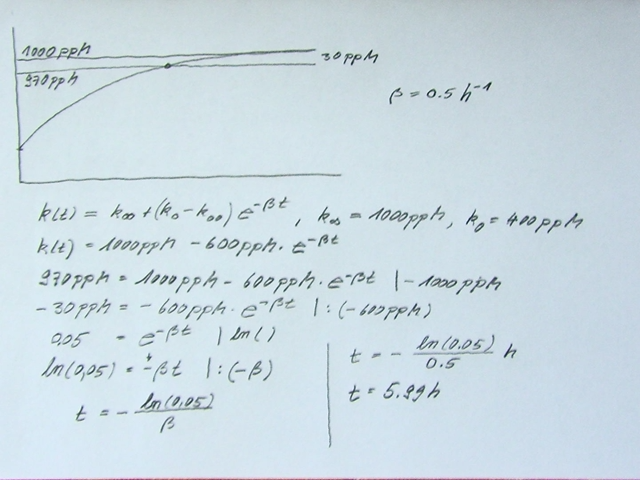 1000ppm
970ppm
30ppm
β = 0.5 h⁻¹
k(t) = k∞ + (k₀ - k∞) e^-βt, k∞ = 1000ppm, k₀ = 400ppm
k(t) = 1000ppm - 600ppm · e^-βt
970ppm = 1000ppm - 600ppm · e^-βt | - 1000ppm
-30ppm = -600ppm · e^-βt | : (-600ppm)
0,05 = e^-βt | ln()
ln(0,05) = -βt | : (-β)
t = - ln(0,05) / β
t = - ln(0.05) / 0.5 h
t = 5.99h